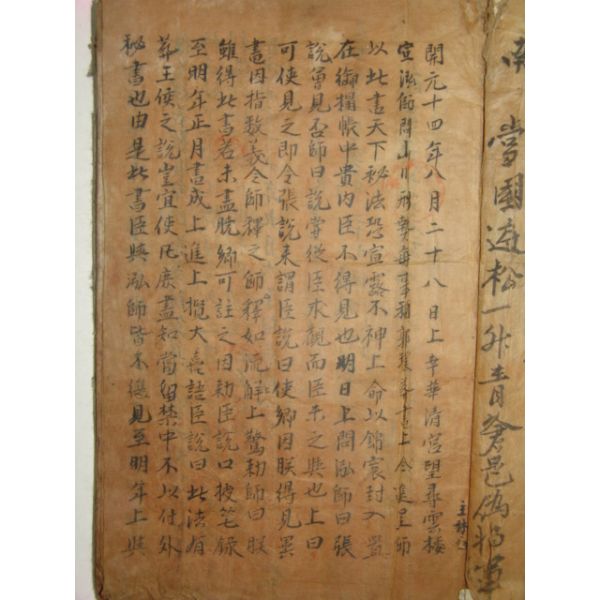 當國遊松一升青
主
開元十四年八月二十八日上幸華清宮望尋雲樓
宣泓師問山川形勢每事稱郭璞葬書上令進呈師
以此書天下秘法恐宣露不神上命以錦囊封入置
在御榻帳中貴內臣不得見也明日上問泓師曰張
說曾見否師曰說嘗從臣求觀而臣未之與也上曰
可使見之即令張說來謂臣說曰使卿因朕得見異
書因指数義令師釋之師釋如流解上驚勑師曰朕
雖得此書若未盡脱卿可註之因勑臣說口授笔録
至明年正月書成上進上攬大喜語臣說曰此法有
葬王侯之說豈宜使凡庶盡知當留禁中不以付外
秘書也由是此書臣與泓師皆不得見至明年上與